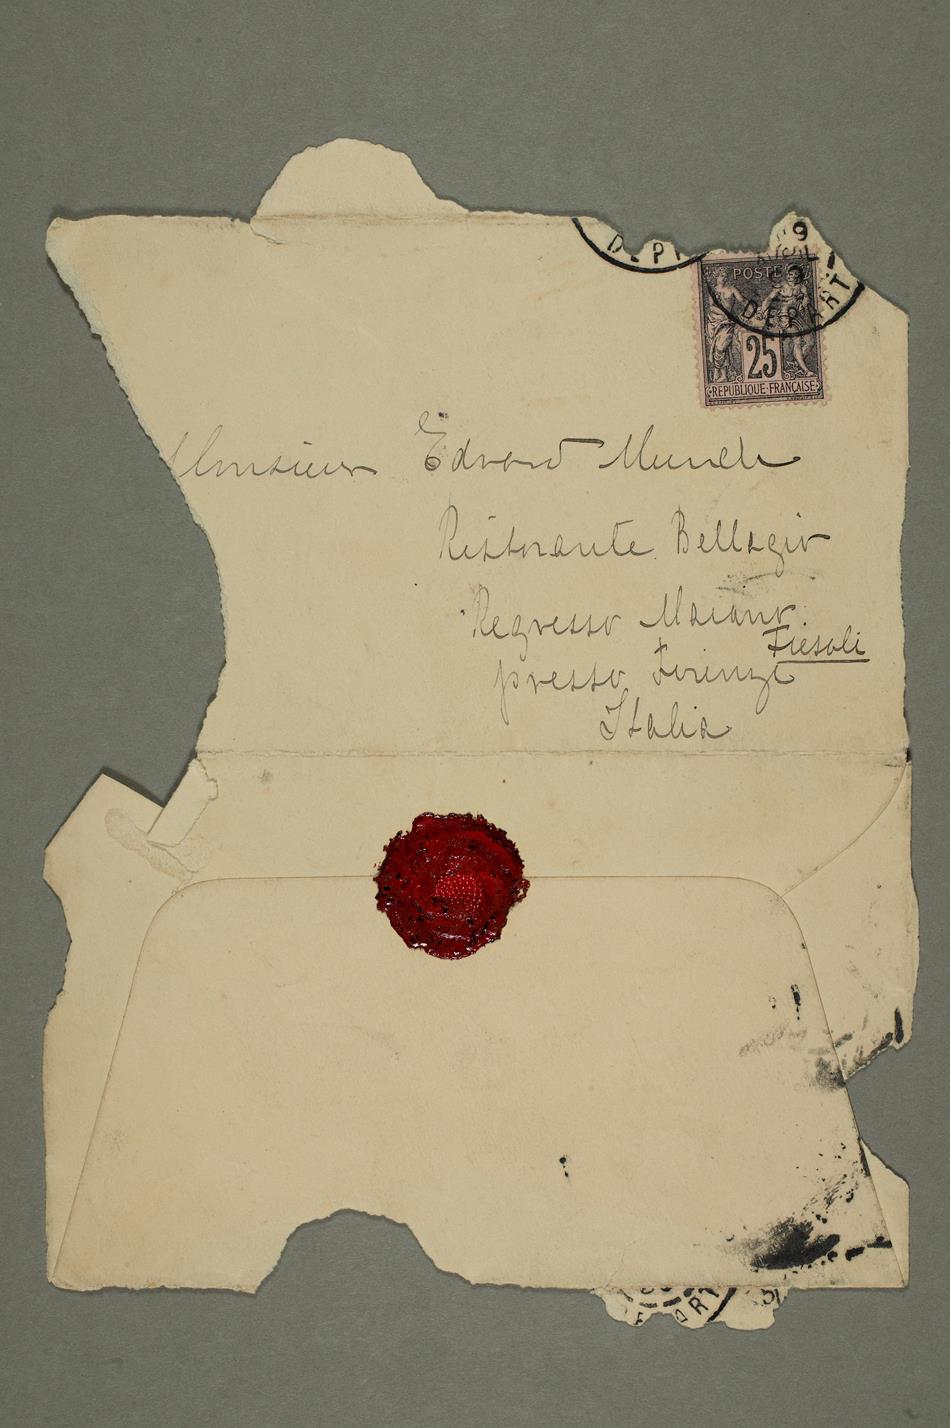 DEPART
POSTE
25
REPUBLIQUE FRANÇAISE
Monsieur Edvard Munch
Ristorante Bellagio
Regresso Maiano
Fiesoli
presso Firenze
Italia